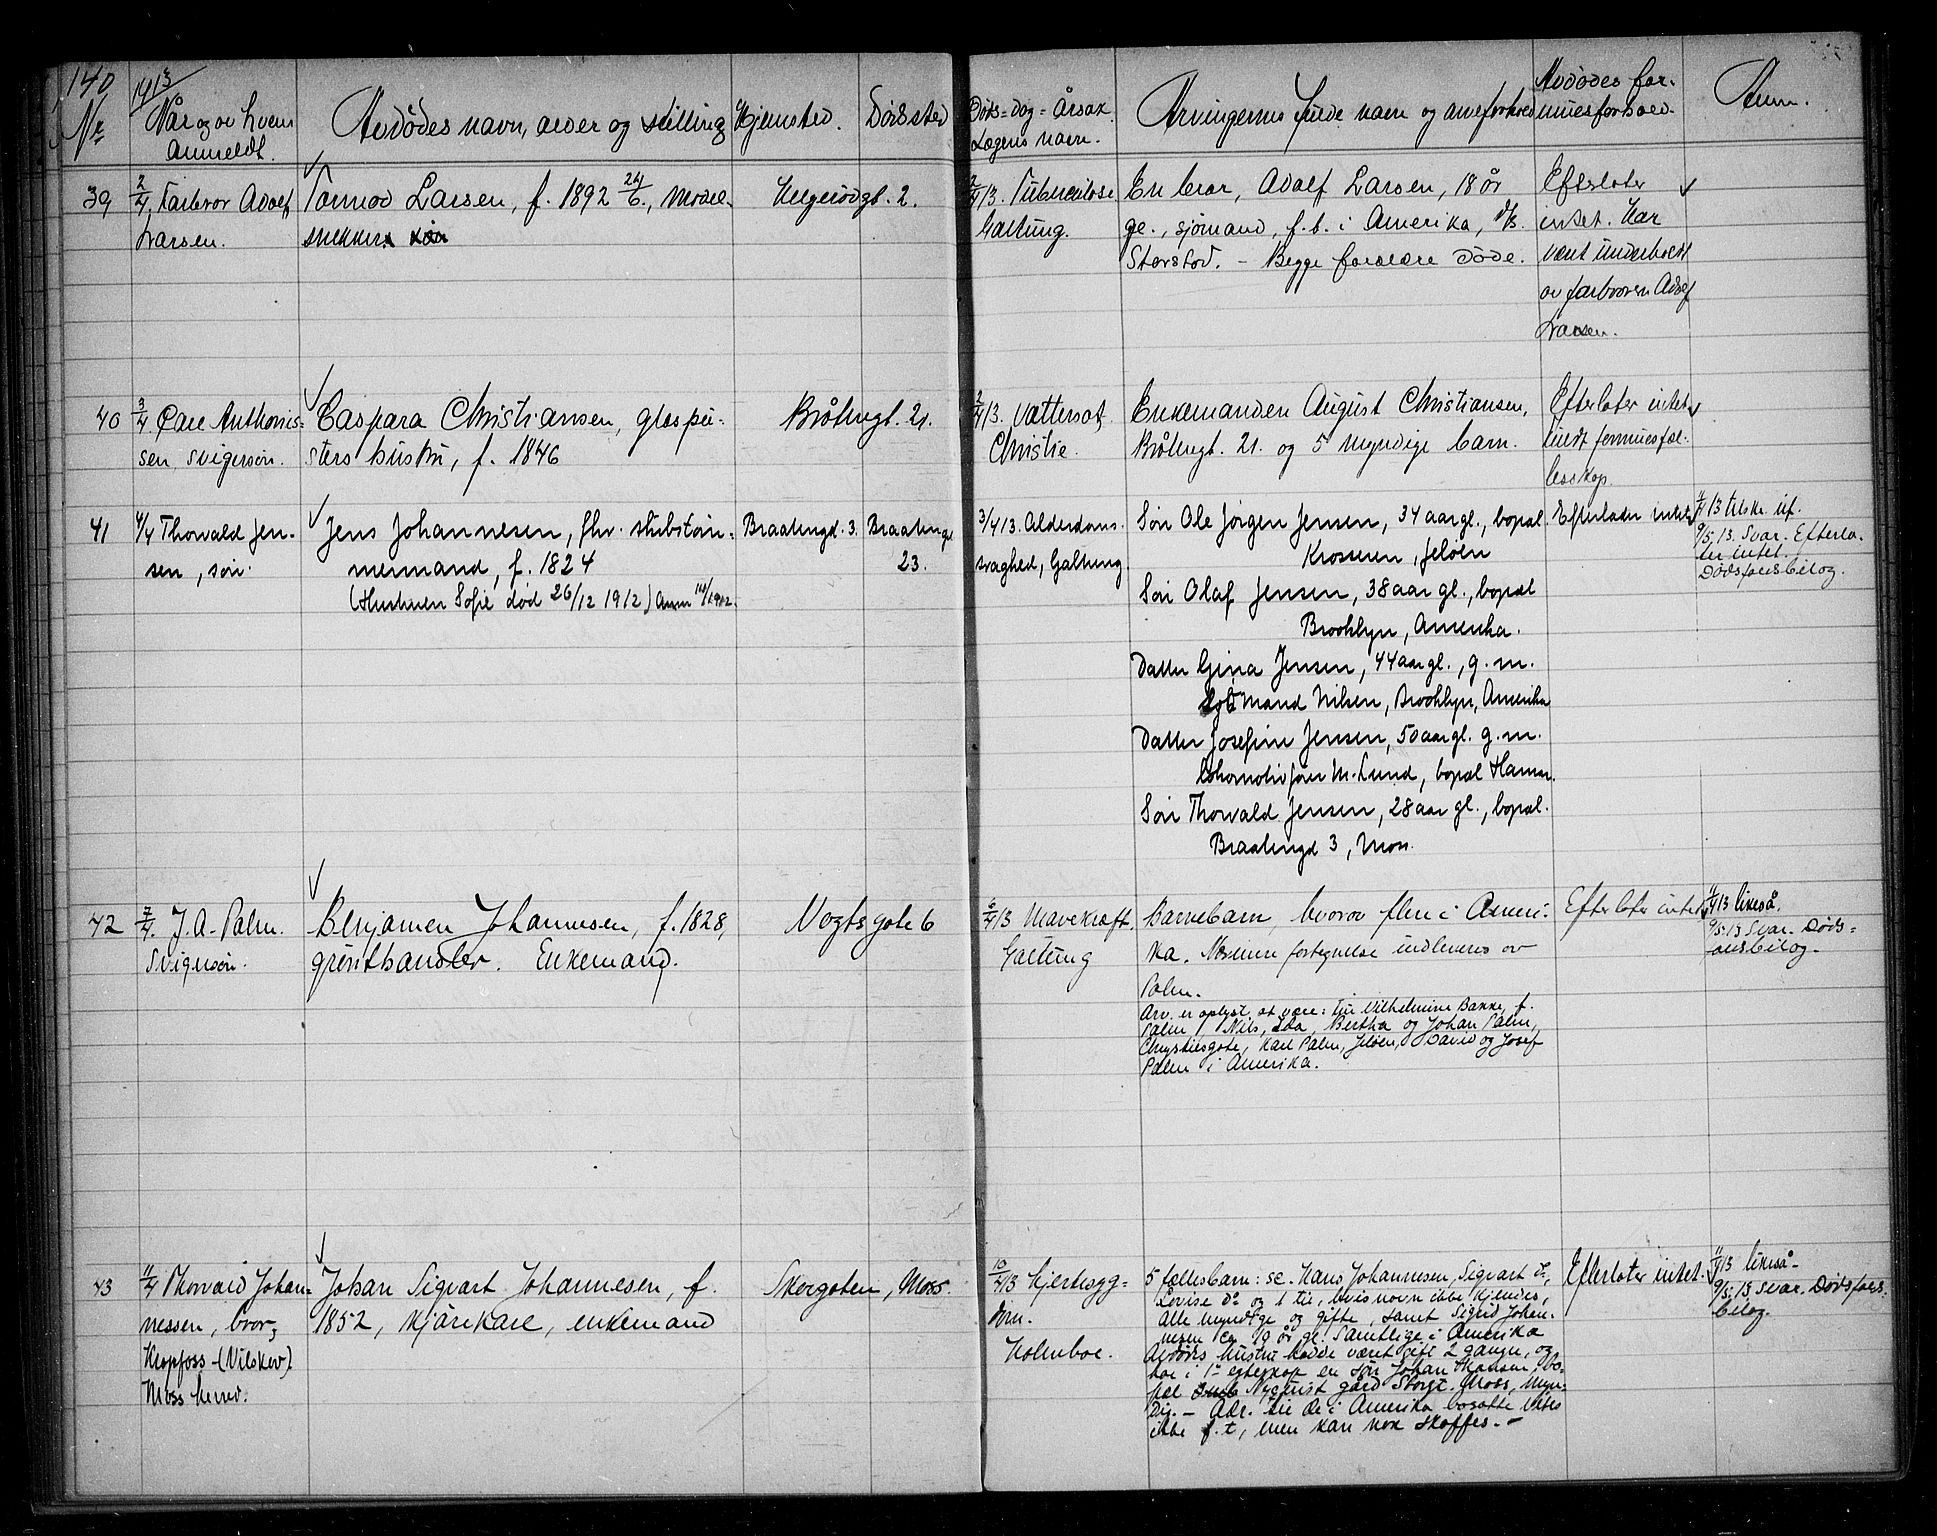 140
1913
Nr
Når og av hvem
Anmeldt.
Avdødes navn, alder og stilling
Hjemsted.
Dødssted
Døds-dag-Årsak
Lægens navn.
Arvingernes fulde navn og arveforhold
Avdødes for-
muesforhold.
Anm.
39
2/4. Farbror Adolf
Larsen.
Tormod Larsen, f. 1892 24/6., model-
snekker
Helgerødgt. 2.
2/4 13. Tuberkulose
Galtung.
En bror, Adolf Larsen, 18 år
gl., sjømand, f. b. i Amerika, d/s.
Storstad. - Begge forældre døde.
Efterlater
intet. Har
været underholdt
av farbroren Adolf
Larsen.
40
3/4. Carl Anthonis-
sen svigersøn.
Caspara Christiansen, glaspu-
sters hustru, f. 1846
Bråtengt. 21.
2/4 13. Vattersot
Christie.
Enkemanden August Christiansen,
Bråtengt. 21. og 5 myndige barn.
Efterlater intet
fuldt formuesfæl-
lesskap.
41
4/4 Thorvald Jen-
sen, søn.
Jens Johannesen, fhv. skibstøm-
mermand, f. 1824
(Hustruen Sofie død 26/12 1912)
Braatengd. 3.
Braatengt
23.
3/4 13. Alderdoms-
svaghed, Galtung.
Søn Ole Jørgen Jensen, 34 aar gl., bopæl
Krosseren, Jeløen
Søn Olaf Jensen, 38 aar gl., bopæl
Brooklyn, Amerika.
Datter Gina Jensen, 44 aar gl., g. m.
Nilsen, Brooklyn, Amerika
Datter Josefine Jensen, 50 aar gl. g. m.
Lokomotivfører M. Lund, bopæl Hamar.
Søn Thorvald Jensen, 28 aar gl., bopæl.
Braatengd 3, Moss.
Efterlader intet
9/5 13. Svar. Efterla-
ter intet.
Dødsfaldsbilag.
42
7/4. J. A. Palm.
Svigersøn.
Benjamen Johannesen, f. 1828,
grønthandler. Enkemand.
Vogts gate 6
6/4 13 Mavekræft.
Galtung
Barnebarn, hvorav flere i Ameri-
ka. Nærmere fortegnelse indleveres av
Palm.
Arv. er oplyst at være: Vilhelmine Bakke, f.
Palm, Nils, Ida, Bertha og Johan Palm,
Chrystiesgate, Karl Palm, Jeløen, David og Josef
Palm i Amerika.
Efterlater intet
11/4 13 likeså.
9/5 13 Svar. Døds-
faldsbilag.
43
11/4 Thorvald Johan-
nessen, bror,
Kropfoss - (Vilskov)
Moss herred.
Johan Sigvart Johannesen, f.
1852, kjørekarl, enkemand
Skogaten, Moss.
10/4 13 Hjertesyg-
dom.
Holmboe.
5 fællesbarn: se. Hans Johannesen, Sigvart do,
Lovise do og 1 til, hvis navn ikke kjendes,
alle myndige og gifte, samt Sigrid Johan-
nesen ca 19 år gl. Samtlige i Amerika
Avdødes hustru hadde været gift 2 ganger, og
har i 1ste egteskap en søn Johan Hansen, bo-
pæl Nyquist gård Storgt. Moss, myn-
dig. - Adr. til de i Amerika bosatte vites
ikke f. t, men kan nok skaffes. -
Efterlater intet.
11/4 13 likeså -
9/5 13 Svar. Dødsfalds-
bilag.